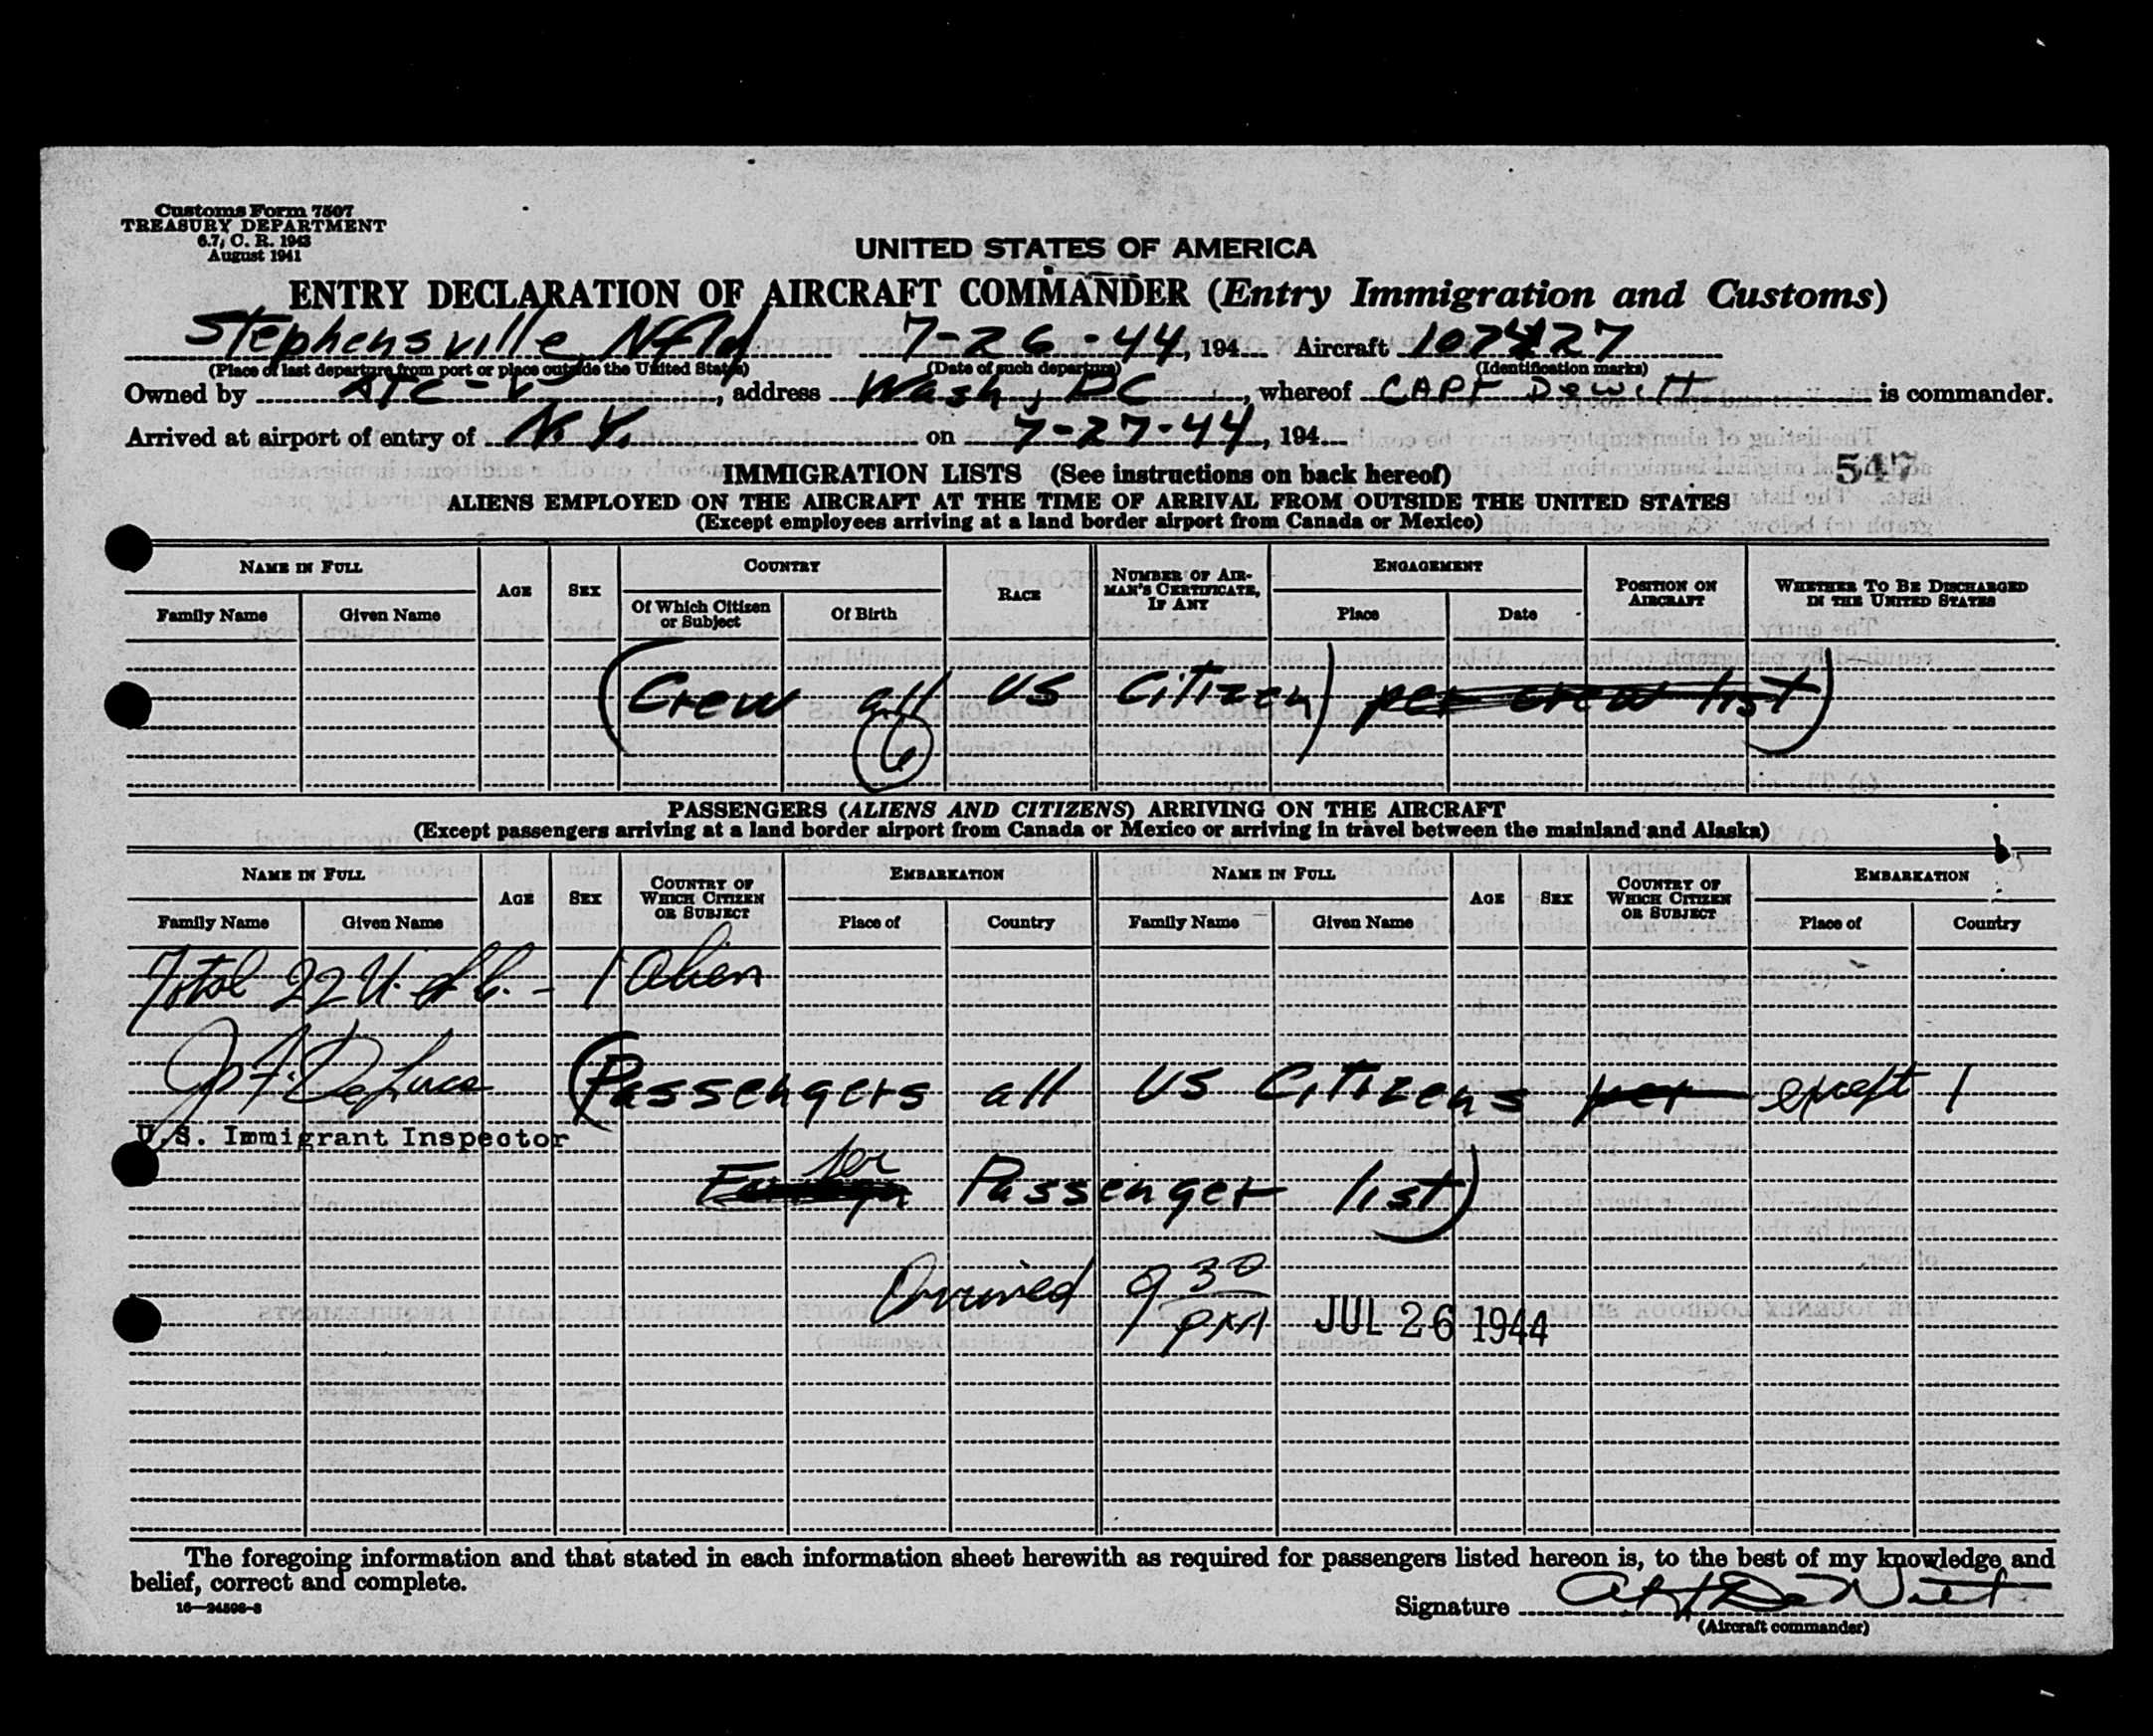 Customs Form 7507
TREASURY DEPARTMENT
6.7, C. R. 1943
August 1941
UNITED STATES OF AMERICA
ENTRY DECLARATION OF AIRCRAFT COMMANDER (Entry Immigration and Customs)
Stephensville, Nfld 7-26-44, 194... Aircraft 107427
(Place of last departure from port or place outside the United States) (Date of such departure) (Identification marks)
Owned by ATC-, address Wash, DC, whereof CAPT DeWitt is commander.
Arrived at airport of entry of N.Y. on 7-27-44, 194...
IMMIGRATION LISTS (See instructions on back hereof)
547
ALIENS EMPLOYED ON THE AIRCRAFT AT THE TIME OF ARRIVAL FROM OUTSIDE THE UNITED STATES
(Except employees arriving at a land border airport from Canada or Mexico)
NAME IN FULL AGE SEX COUNTRY RACE NUMBER OF AIRMAN'S CERTIFICATE, IF ANY ENGAGEMENT POSITION ON AIRCRAFT WHETHER TO BE DISCHARGED IN THE UNITED STATES
Family Name Given Name Of Which Citizen or Subject Of Birth Place Date
(Crew all US Citizen) per crew list)
6
PASSENGERS (ALIENS AND CITIZENS) ARRIVING ON THE AIRCRAFT
(Except passengers arriving at a land border airport from Canada or Mexico or arriving in travel between the mainland and Alaska)
NAME IN FULL AGE SEX COUNTRY OF WHICH CITIZEN OR SUBJECT EMBARKATION NAME IN FULL AGE SEX COUNTRY OF WHICH CITIZEN OR SUBJECT EMBARKATION
Family Name Given Name Place of Country Family Name Given Name Place of Country
Total 22 U.S.C. - 1 alien
J. F. DeLuca
(Passengers all US Citizens per except 1
U.S. Immigrant Inspector
per Passenger list)
Arrived 9 30 PM JUL 26 1944
The foregoing information and that stated in each information sheet herewith as required for passengers listed hereon is, to the best of my knowledge and
belief, correct and complete.
16—24596-3
Signature DeWitt
(Aircraft commander)